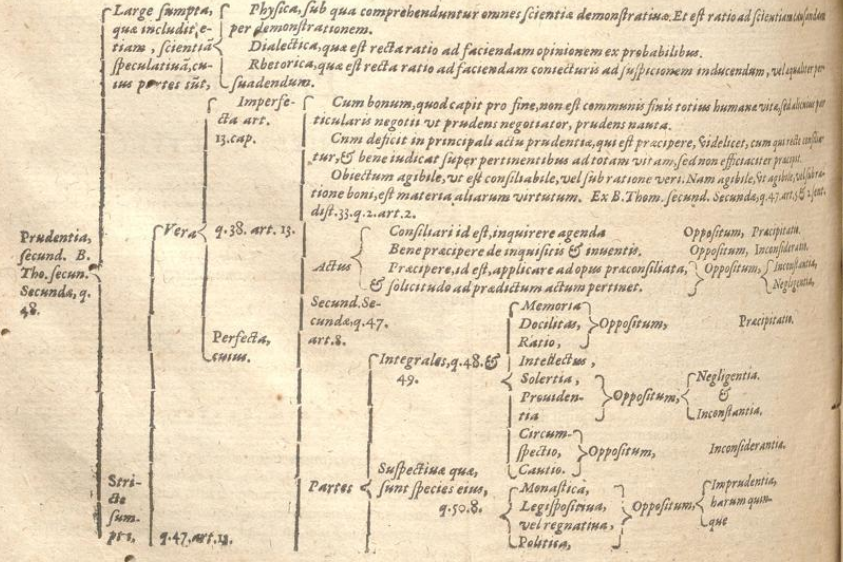 Large sumpta,
quæ includit, e-
tiam, scientiã
speculatiuã, cu-
ius partes sũt,
Physica, sub qua comprehenduntur omnes scientiæ demonstratiuæ. Et est ratio ad scientiam
per demonstrationem.
Dialectica, quæ est recta ratio ad faciendam opinionem ex probabilibus.
Rhetorica, quæ est recta ratio ad faciendam coniecturis ad suspicionem inducendum, vel
suadendum.
Imperfe-
cta art.
13. cap.
Cum bonum, quod capit pro fine, non est communis finis totius humanæ vitæ, sed alicuius par
ticularis negotii vt prudens negotiator, prudens nauta.
Cnm deficit in principali actu prudentiæ, qui est præcipere, videlicet, cum qui recte
tur, & bene iudicat super pertinentibus ad totam vitam, sed non efficaciter præcipit.
Obiectum agibile, vt est consiliabile, vel sub ratione veri. Nam agibile, vt agibile, vel sub ra-
tione boni, est materia aliarum virtutum. Ex B. Thom. secund. Secundæ, q. 47. art.
dist. 33. q. 2. art. 2.
Prudentia,
secund. B.
Tho. secun.
Secundæ, q.
48.
Vera
q. 38. art. 13.
Actus
Consiliari id est, inquirere agenda
Oppositum, Præcipitatio.
Bene præcipere de inquisitis & inuentis.
Oppositum, Inconsideratio.
Præcipere, id est, applicare ad opus præconsiliata,
& solicitudo ad prædictum actum pertinet.
Oppositum,
Inconstantia,
Negligentia.
Secund. Se-
cundæ, q. 47.
art. 8.
Perfecta,
cuius.
Integrales, q. 48. &
49.
Memoria
Docilitas,
Ratio,
Oppositum,
Præcipitatio.
Intellectus,
Solertia,
Prouiden-
tia
Oppositum,
Negligentia.
&
Inconstantia.
Circum-
spectio,
Cautio.
Oppositum,
Inconsiderantia.
Stri-
cte
sum-
pta,
q. 47. art. 13.
Partes
Suspectiuæ quæ,
sunt species eius,
q. 50. 8.
Monastica,
Legispositiua,
vel regnatiua,
Politica,
Oppositum,
Imprudentia,
harum quin-
que